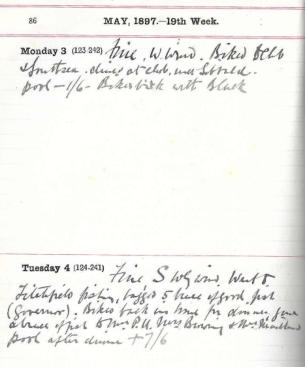 86 MAY, 1897.—19th Week.
Monday 3 (123-242) Fine, W. wind. Biked
Southsea. dined at club, met
pool – 1/6 – Biked back with Black
Tuesday 4 (124-241) Fine S Wly wind. Went to
Titchfield fishing, bagged 5 brace of good fish
(Governor). Biked back in time for dinner, gave
a brace of fish to Mrs P.U. Mrs Browning & Mrs
pool after dinner + 7/6